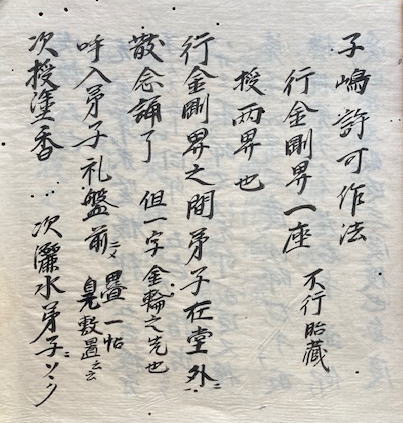 子嶋許可作法
行金剛界一座 不行胎蔵
授两界也
行金剛界之間弟子在堂外ニ
散念誦了 但一字金輪之先也
呼入弟子礼盤前ニテ 畳一帖 皃敷置云云
次授塗香 次灑水弟子ニソヽク